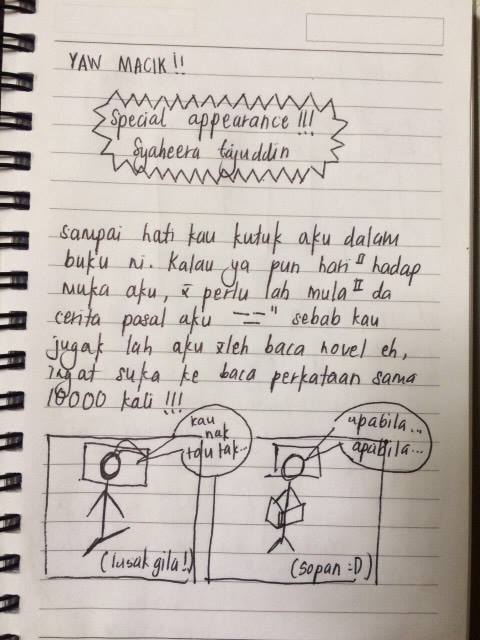 YAW MACIK!!
Special appearance!!!
Syaheera tajuddin
sampai hati kau kutuk aku dalam
buku ni. Kalau ya pun hari II hadap
muka aku, x perlu lah mula II da
cerita pasal aku -__-" sebab kau
jugak lah aku xleh baca novel eh,
ingat suka ke baca perkataan sama
10000 kali !!!
kau
nak
tau tak...
(lusak gila!)
apabila...
apabila...
(sopan :D)